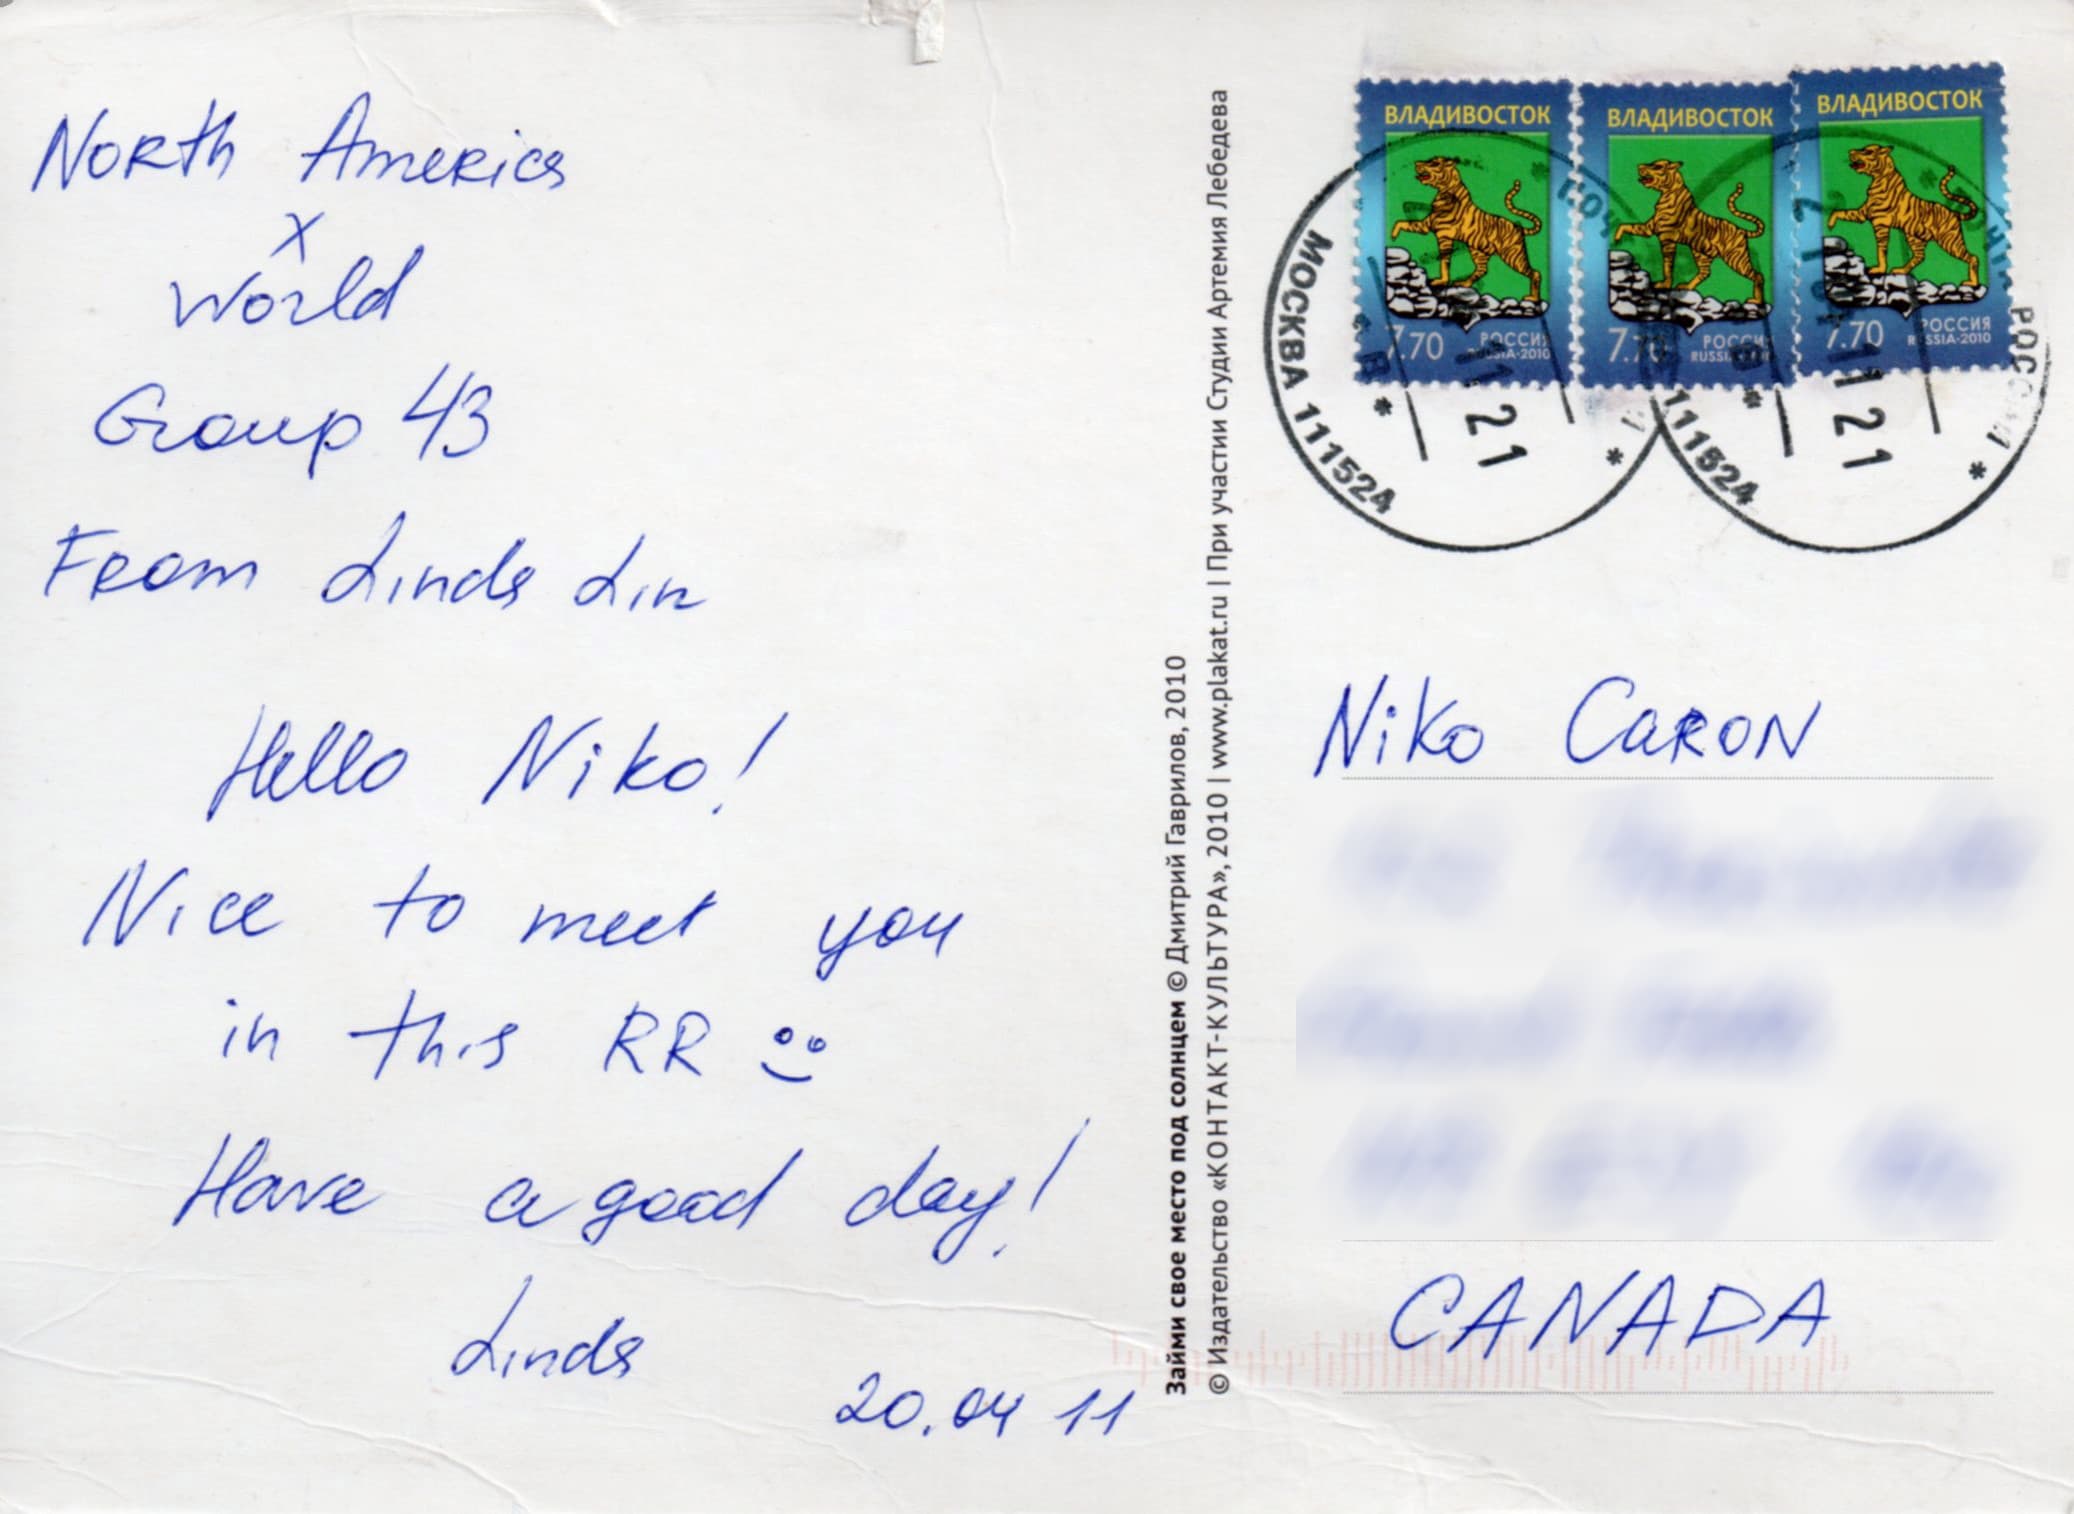 North America
x
World
Group 43
From Linda Lin
Hello Niko!
Nice to meet you
in this RR
Have a good day!
Linda
20.04 11
Займи свое место под солнцем © Дмитрий Гаврилов, 2010
© Издательство «КОНТАКТ-КУЛЬТУРА», 2010 | www.plakat.ru | При участии Студии Артемия Лебедева
ВЛАДИВОСТОК
7.70 РОССИЯ
RUSSIA-2010
ВЛАДИВОСТОК
7.70 РОССИЯ
RUSSIA-2010
ВЛАДИВОСТОК
7.70 РОССИЯ
RUSSIA-2010
МОСКВА 111524
11 21
111524
11 21
Niko CARON
CANADA